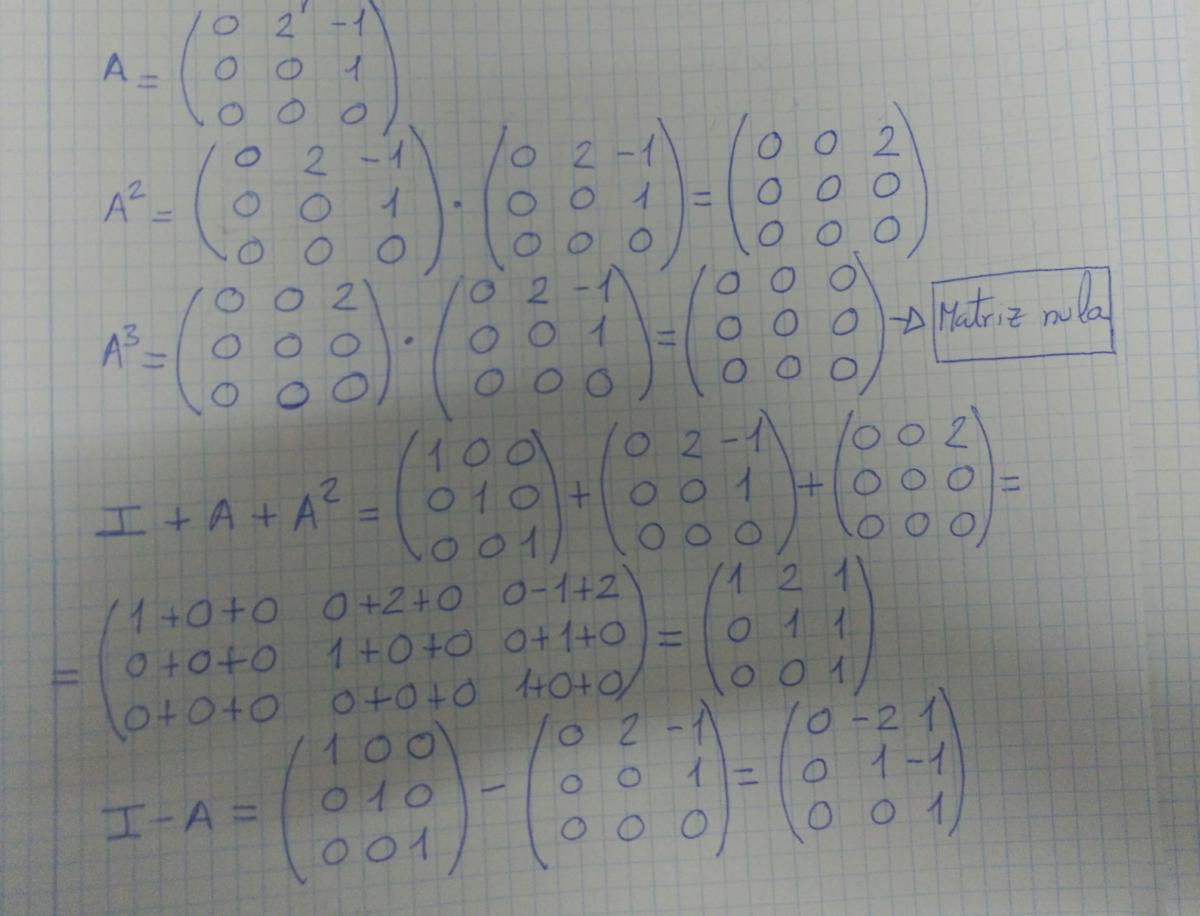 A = (0 2 -1
0 0 1
0 0 0)
A² = (0 2 -1 0 0 1 0 0 0) · (0 2 -1 0 0 1 0 0 0) = (0 0 2 0 0 0 0 0 0)
A³ = (0 0 2 0 0 0 0 0 0) · (0 2 -1 0 0 1 0 0 0) = (0 0 0 0 0 0 0 0 0) → Matriz nula
I + A + A² = (1 0 0 0 1 0 0 0 1) + (0 2 -1 0 0 1 0 0 0) + (0 0 2 0 0 0 0 0 0) =
= (1+0+0 0+2+0 0-1+2 0+0+0 1+0+0 0+1+0 0+0+0 0+0+0 1+0+0) = (1 2 1 0 1 1 0 0 1)
I - A = (1 0 0 0 1 0 0 0 1) - (0 2 -1 0 0 1 0 0 0) = (0 -2 1 0 1 -1 0 0 1)